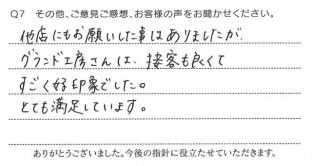 Q7 その他、ご意見ご感想、お客様の声をお聞かせください。
他店にもお願いした事はありましたが、
グランド工房さんは、接客も良くて
すごく好印象でした。
とても満足しています。
ありがとうございました。今後の指針に役立たせていただきます。